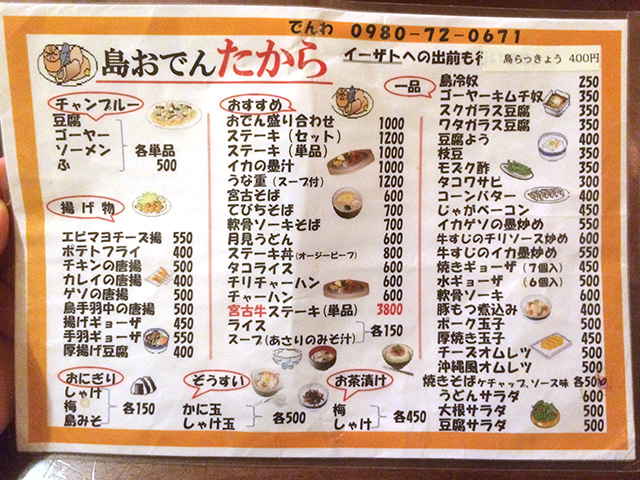 でんわ 0980-72-0671
島おでん たから
イーザトへの出前も
島らっきょう 400円
チャンプルー
豆腐
ゴーヤー
ソーメン
ふ
各単品
500
揚げ物
エビマヨチーズ揚 550
ポテトフライ 400
チキンの唐揚 500
カレイの唐揚 400
ゲソの唐揚 500
鳥手羽中の唐揚 500
揚げギョーザ 450
手羽ギョーザ 500
厚揚げ豆腐 400
おすすめ
おでん盛り合わせ 1000
ステーキ(セット) 1200
ステーキ(単品) 1000
イカの墨汁 1000
うな重(スープ付) 1200
宮古そば 600
てびちそば 700
軟骨ソーキそば 700
月見うどん 600
ステーキ丼(オージービーフ) 800
タコライス 600
チリチャーハン 600
チャーハン 600
宮古牛ステーキ(単品) 3800
ライス
スープ(あさりのみそ汁)
各150
一品
島冷奴 250
ゴーヤーキムチ奴 350
スクガラス豆腐 350
ワタガラス豆腐 350
豆腐よう 400
枝豆 350
モズク酢 350
タコワサビ 300
コーンバター 400
じゃがベーコン 450
イカゲソの墨炒め 550
牛すじのチリソース炒め 600
牛すじのイカ墨炒め 550
焼きギョーザ(7個入) 450
水ギョーザ(6個入) 500
軟骨ソーキ 600
豚もつ煮込み 400
ポーク玉子 500
厚焼き玉子 400
チーズオムレツ 500
沖縄風オムレツ 500
焼きそばケチャップ、ソース味 各500
うどんサラダ 600
大根サラダ 500
豆腐サラダ 500
おにぎり
しゃけ
梅
島みそ
各150
ぞうすい
かに玉
しゃけ玉
各500
お茶漬け
梅
しゃけ
各450